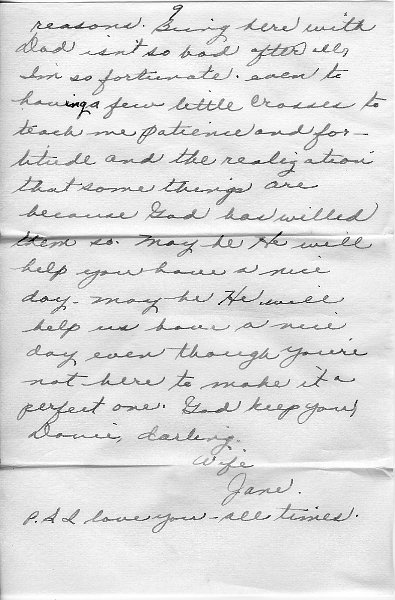 9
reasons. Being here with
Dad isn't so bad after all,
I'm so fortunate. even to
having a few little crosses to
teach me patience and for-
titude and the realization
that some things are
because God has willed
them so. May be He will
help you have a nice
day - may be He will
help us have a nice
day even though you're
not here to make it a
perfect one. God keep you,
darling.
Wife
Jane.
P.S I love you - all times.